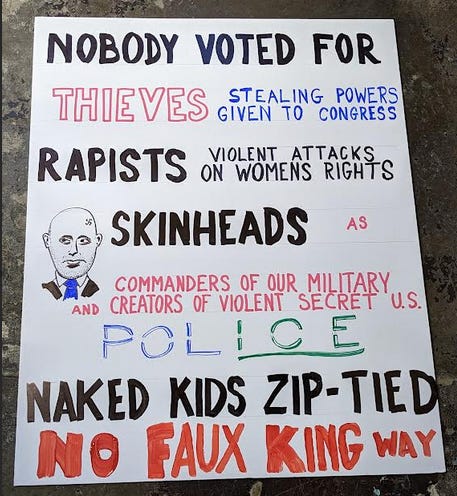 NOBODY VOTED FOR
THIEVES STEALING POWERS
GIVEN TO CONGRESS
RAPISTS VIOLENT ATTACKS
ON WOMENS RIGHTS
SKINHEADS AS
COMMANDERS OF OUR MILITARY
AND CREATORS OF VIOLENT SECRET U.S.
POLICE
NAKED KIDS ZIP-TIED
NO FAUX KING WAY